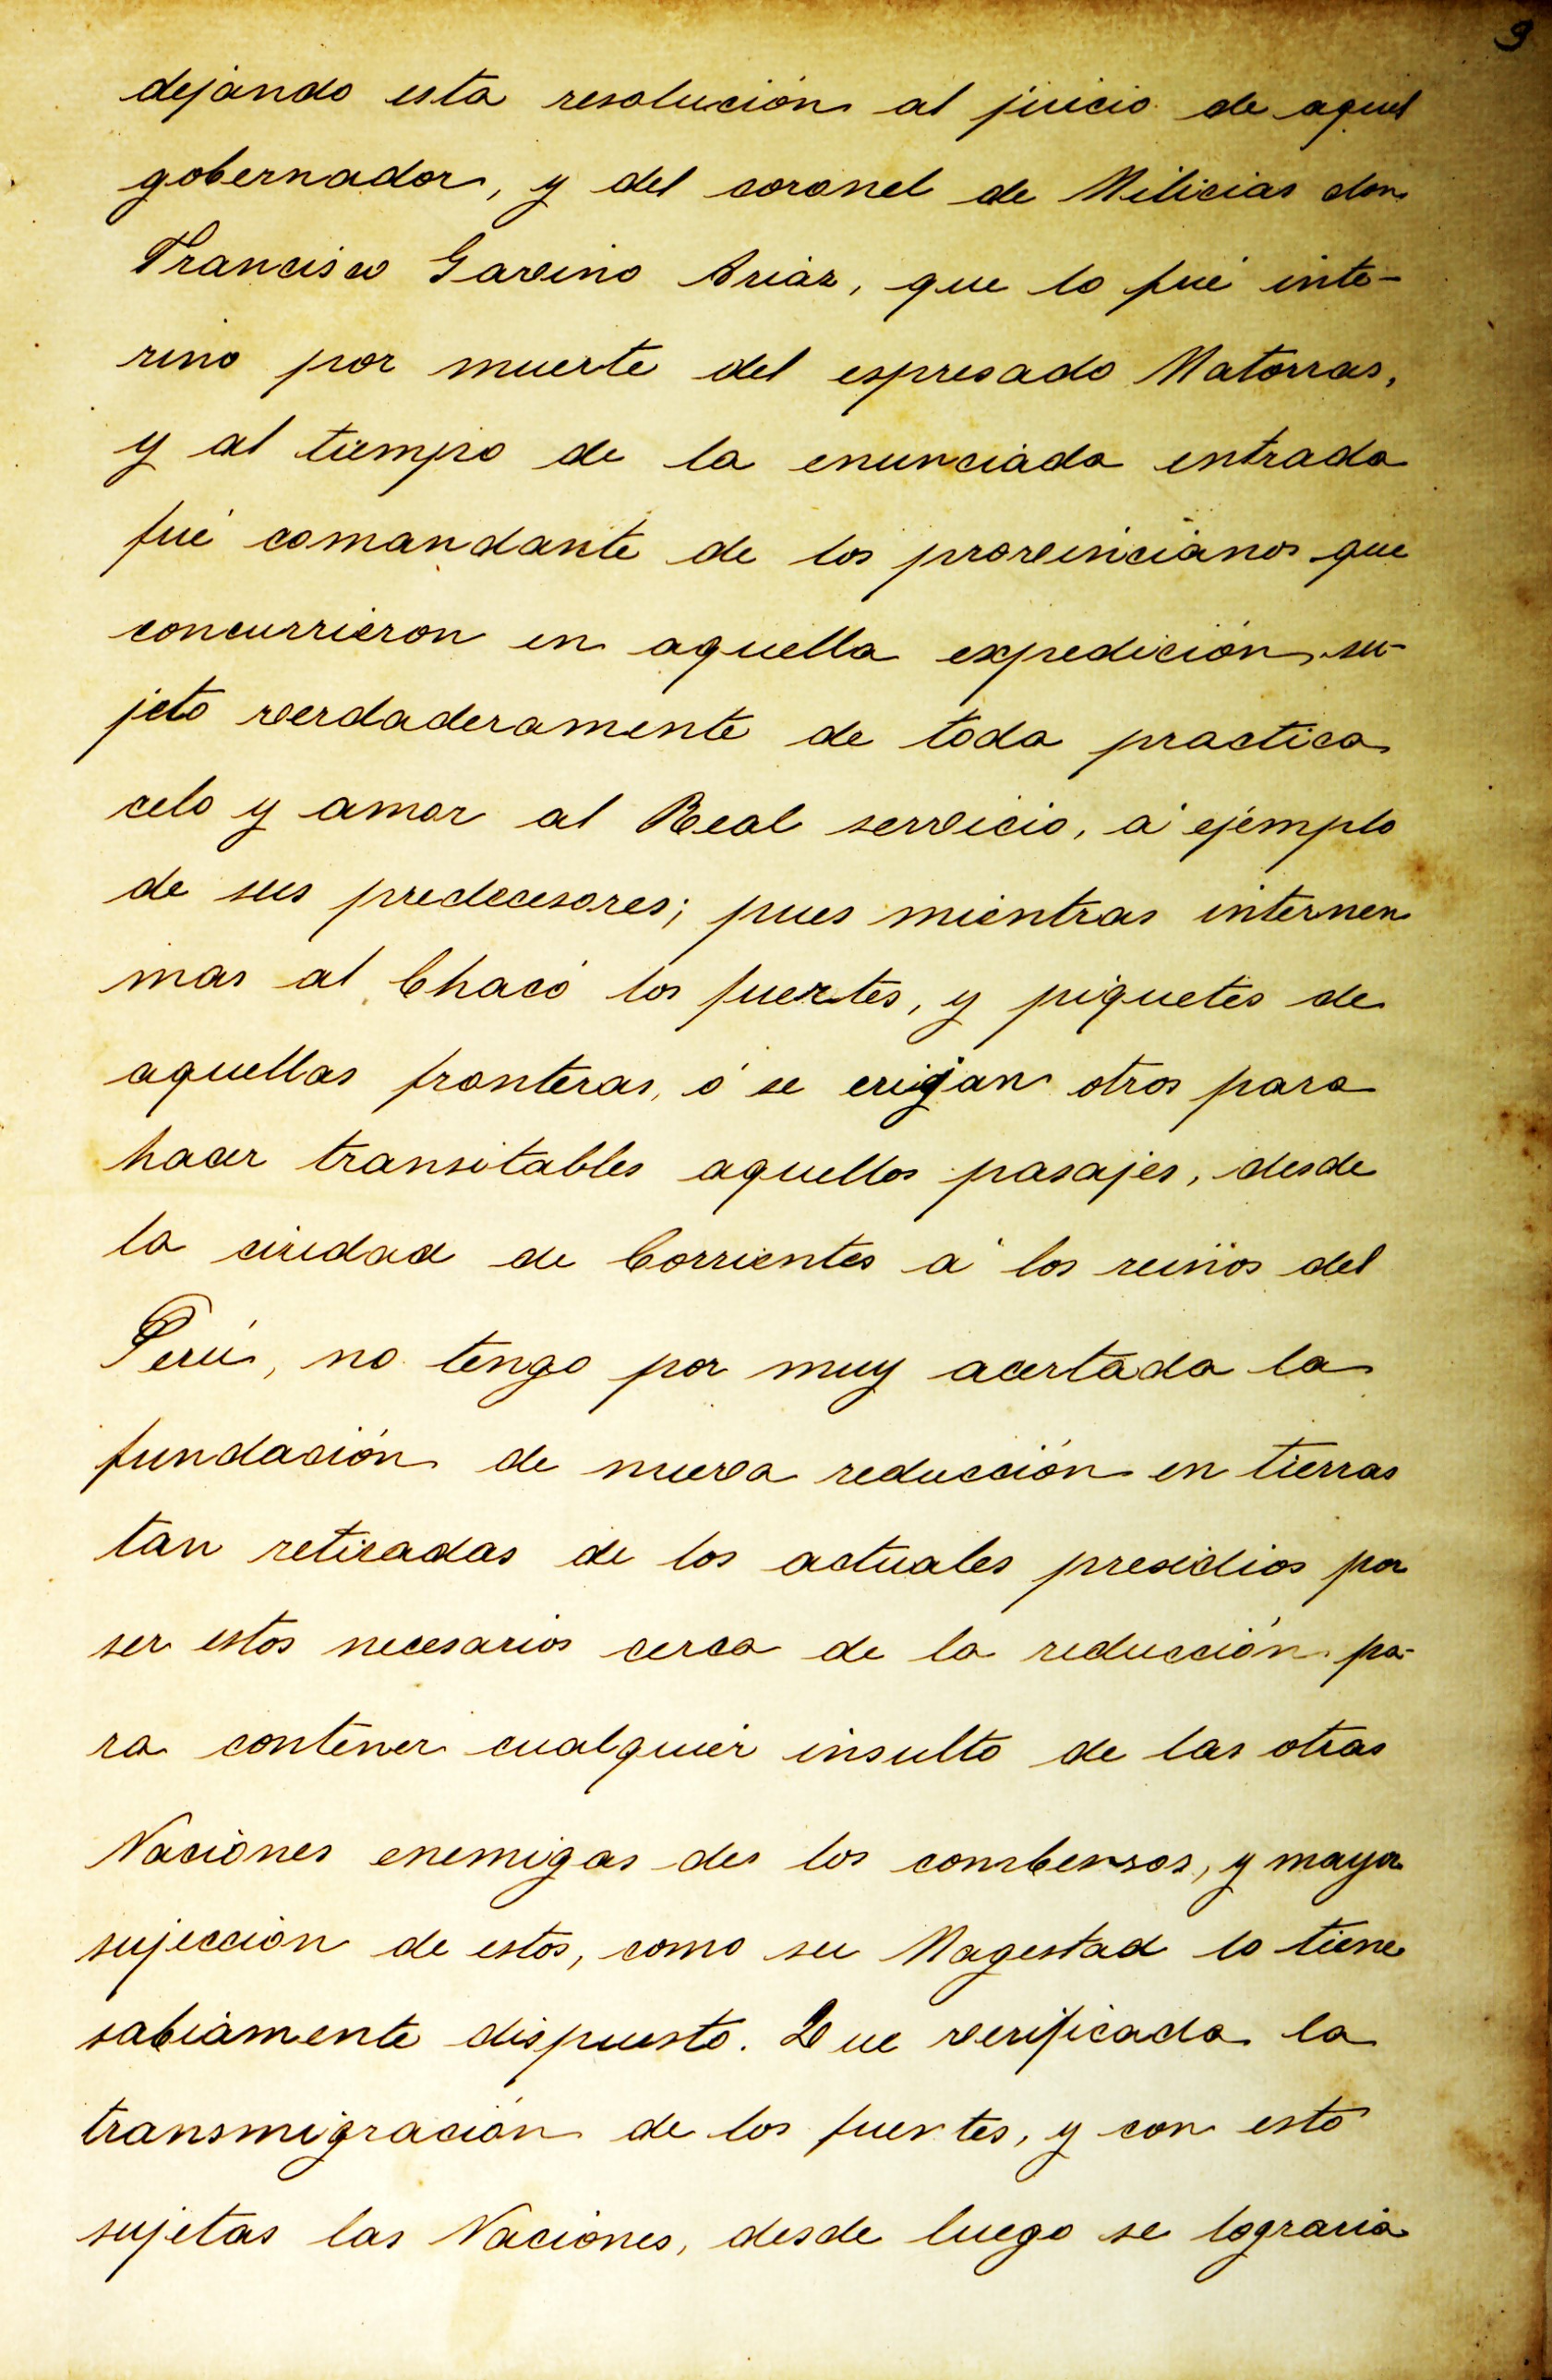 9
dejando esta resolución al juicio de aquel
gobernador, y del coronel de Milicias don
Francisco Gavino Ariaz, que lo fué inte-
rino por muerte del espresado Matorras,
y al tiempo de la enunciada entrada
fué comandante de los provincianos que
concurrieron en aquella expedición, su-
jeto verdaderamente de toda practica
celo y amor al Real servicio, á ejemplo
de sus predecesores; pues mientras internen
mas al Chaco los fuertes, y piquetes de
aquellas fronteras, ó se erijan otros para
hacer transitables aquellos pasajes, desde
la ciudad de Corrientes á los reinos del
Perú, no tengo por muy acertada la
fundación de nueva reducción en tierras
tan retiradas de los actuales presidios por
ser estos necesarios cerca de la reducción pa-
ra contener cualquier insulto de las otras
Naciones enemigas de los combersos, y mayor
sujección de estos, como su Magestad lo tiene
sabiamente dispuesto. Que verificada la
transmigración de los fuertes, y con esto
sujetas las Naciones, desde luego se lograria